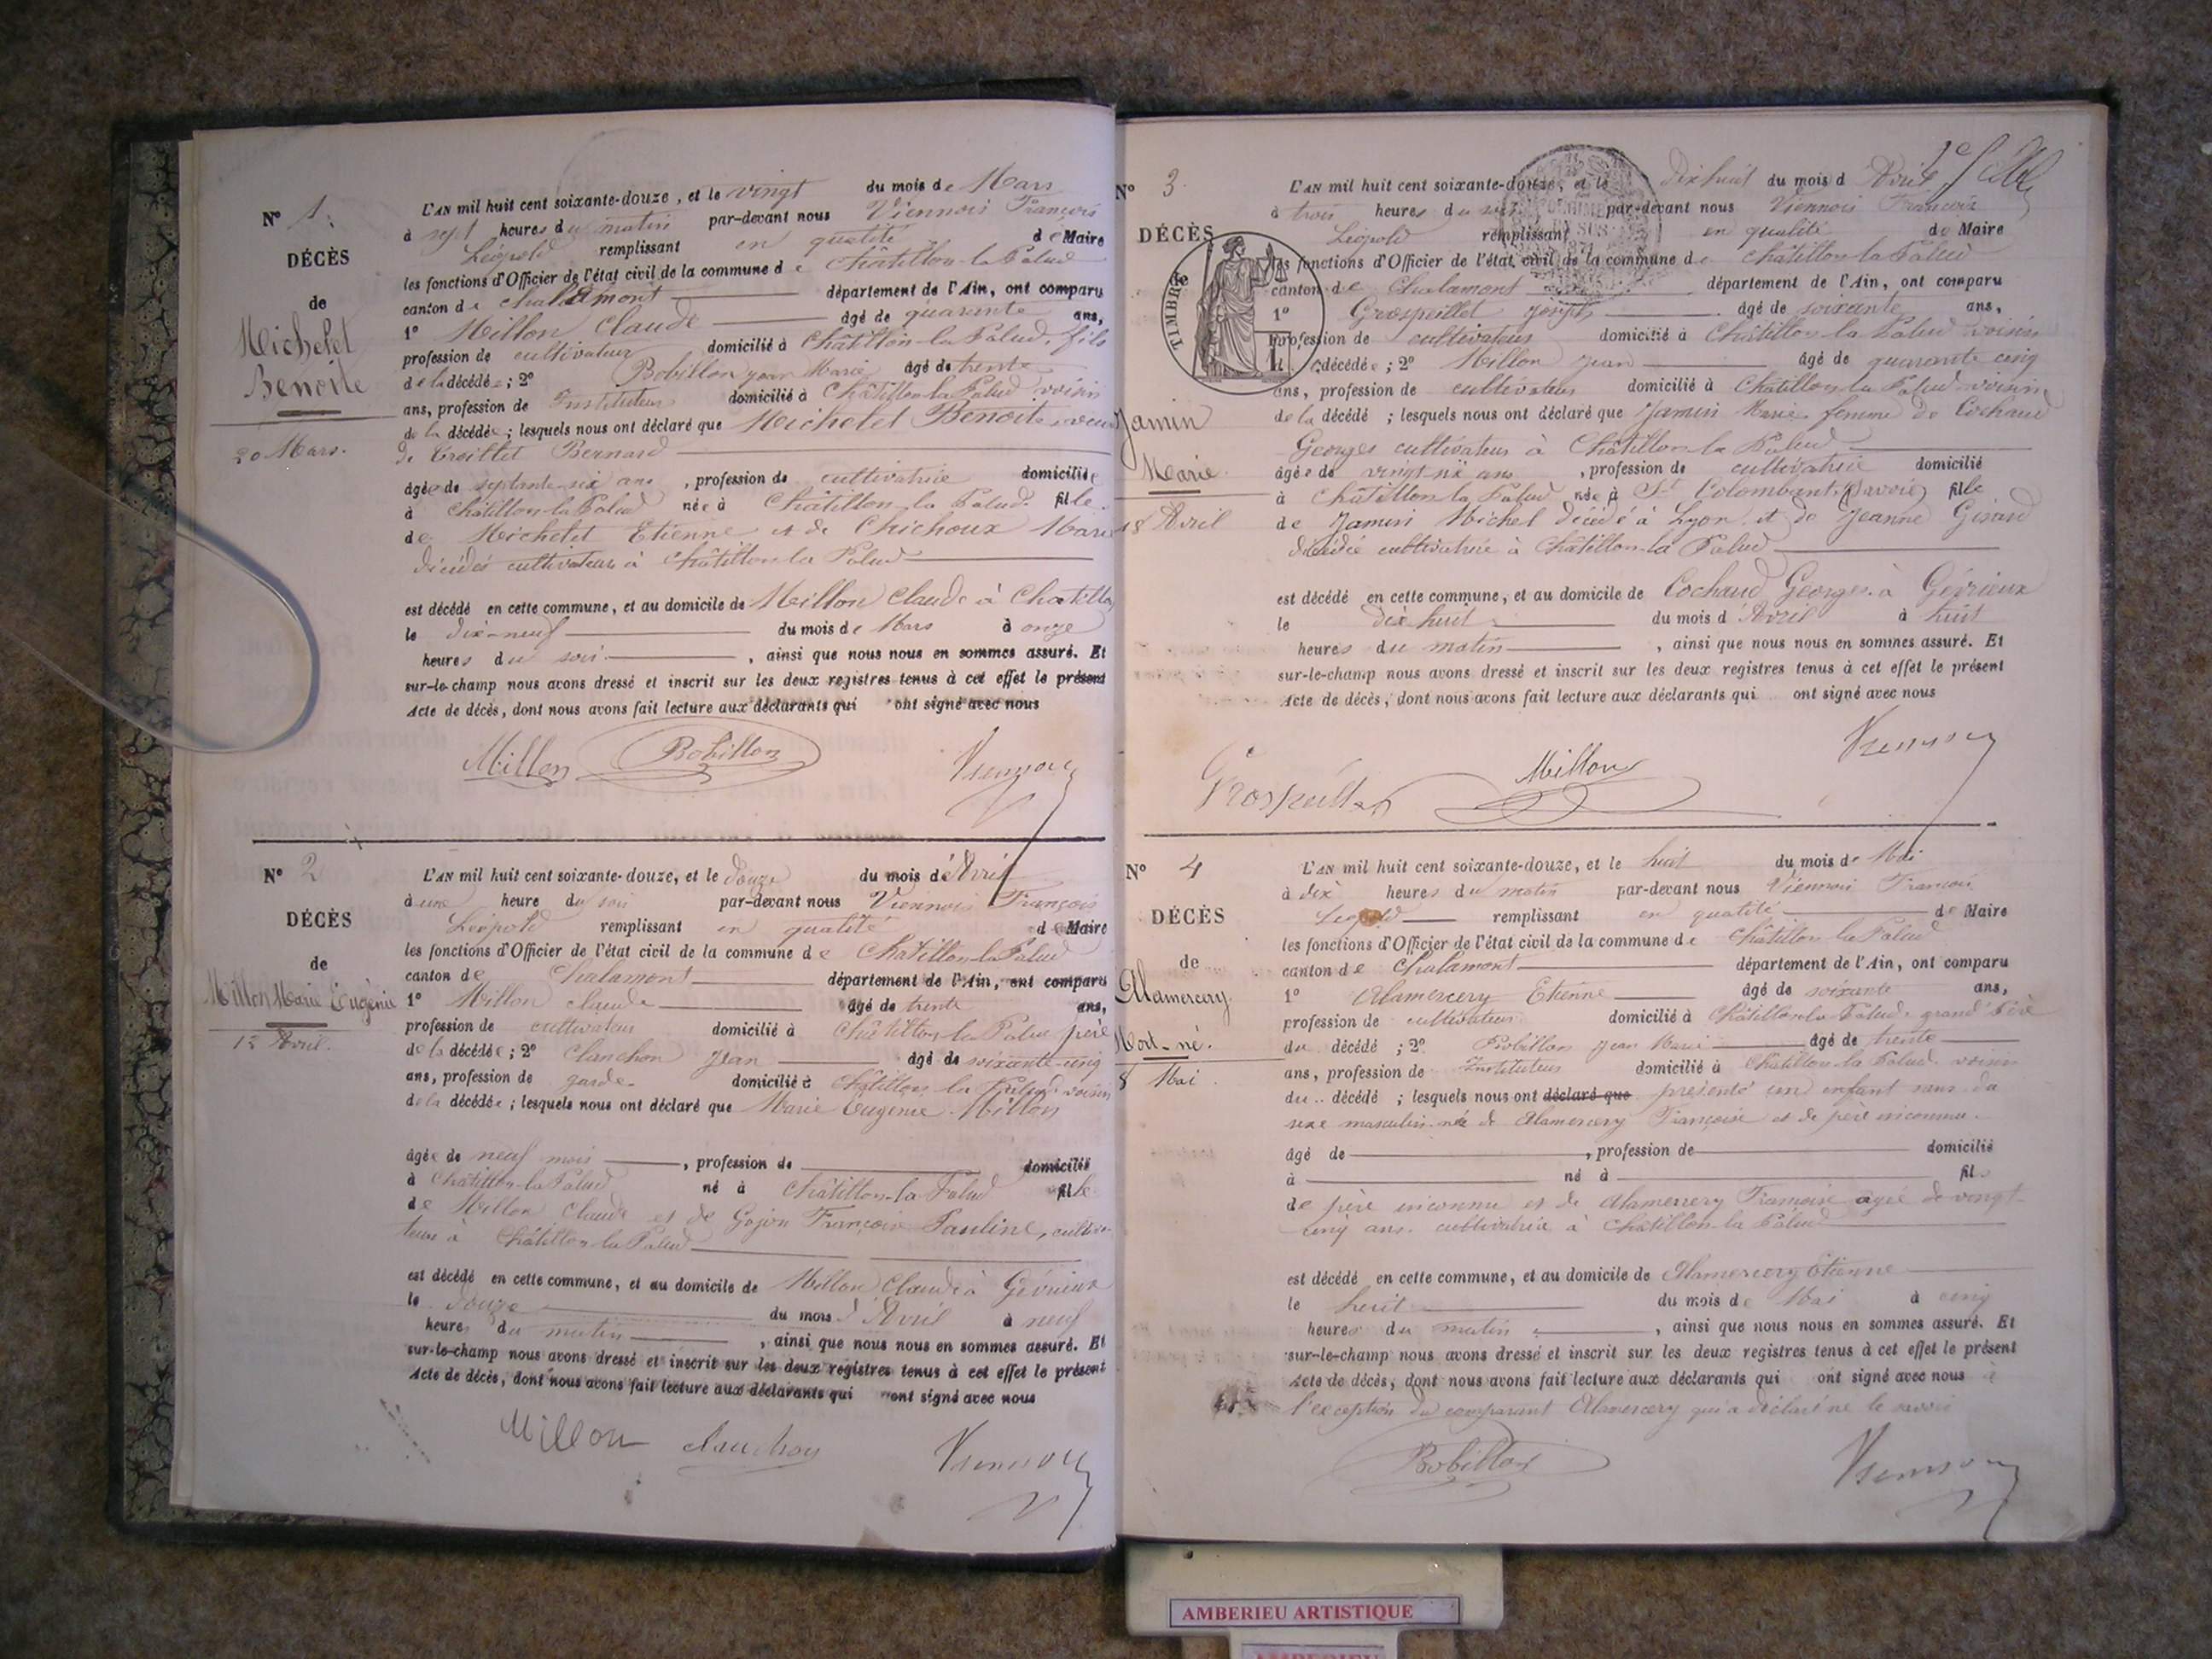 N° 1.
DÉCÈS
de
Michelet
Benoite
20 Mars.
L'AN mil huit cent soixante-douze, et le vingt du mois de Mars
à sept heures du matin par-devant nous Viennois François
Léopold remplissant en qualité de Maire
les fonctions d'Officier de l'état civil de la commune de Châtillon-la-Palud
canton de Chalamont département de l'Ain, ont comparu
1° Millon Claude âgé de quarante ans,
profession de cultivateur domicilié à Châtillon-la-Palud, fils
de la décédée; 2° Bobillon Jean Marie âgé de trente
ans, profession de Instituteur domicilié à Châtillon-la-Palud voisin
de la décédée; lesquels nous ont déclaré que Michelet Benoite, veuve
de Bernard
âgée de septante-six ans, profession de cultivatrice domiciliée
à Châtillon-la-Palud née à Châtillon-la-Palud fille
de Michelet Etienne et de Chichoux Marie
décédés cultivateurs à Châtillon-la-Palud
est décédé en cette commune, et au domicile de Millon Claude à Chatillon
le dix-neuf du mois de Mars à onze
heures du soir, ainsi que nous nous en sommes assuré. Et
sur-le-champ nous avons dressé et inscrit sur les deux registres tenus à cet effet le présent
Acte de décès, dont nous avons fait lecture aux déclarants qui ont signé avec nous
Millon Bobillon Viennois
N° 2
DÉCÈS
de
Millon Marie Eugénie
12 Avril.
L'AN mil huit cent soixante-douze, et le douze du mois d'Avril
à une heure du soir par-devant nous Viennois François
Léopold remplissant en qualité de Maire
les fonctions d'Officier de l'état civil de la commune de Châtillon-la-Palud
canton de Chalamont département de l'Ain, ont comparu
1° Millon Claude âgé de trente ans,
profession de cultivateur domicilié à Châtillon-la-Palud père
de la décédée; 2° Clanchon Jean âgé de soixante-cinq
ans, profession de garde domicilié à Châtillon-la-Palud voisin
de la décédée; lesquels nous ont déclaré que Marie Eugénie Millon
âgée de neuf mois, profession de domicilié
à Châtillon-la-Palud né à Châtillon-la-Palud fille
de Millon Claude et de Gojon Françoise Pauline, cultiva-
teurs à Châtillon-la-Palud
est décédé en cette commune, et au domicile de Millon Claude à Gévrieux
le douze du mois d'Avril à neuf
heures du matin, ainsi que nous nous en sommes assuré. Et
sur-le-champ nous avons dressé et inscrit sur les deux registres tenus à cet effet le présent
Acte de décès, dont nous avons fait lecture aux déclarants qui ont signé avec nous
Millon Clanchon Viennois
N° 3
DÉCÈS
TIMBRE
Jamin
Marie
18 Avril
L'AN mil huit cent soixante-douze, et le dix huit du mois d'Avril
à trois heures du soir par-devant nous Viennois François
Léopold remplissant en qualité de Maire
les fonctions d'Officier de l'état civil de la commune de Châtillon la Palud
canton de Chalamont département de l'Ain, ont comparu
1° Grospeillet Joseph âgé de soixante ans,
profession de cultivateur domicilié à Châtillon la Palud voisin
décédée; 2° Millon Jean âgé de quarante cinq
ans, profession de cultivateur domicilié à Châtillon la Palud voisin
de la décédé; lesquels nous ont déclaré que Jamin Marie femme de Cochaud
Georges cultivateur à Châtillon-la-Palud
âgée de vingt six ans, profession de cultivatrice domicilié
à Châtillon la Palud née à St Colomban (Savoie) fille
de Jamin Michel décédé à Lyon et de Jeanne Girard
décédée cultivatrice à Châtillon-la-Palud
est décédé en cette commune, et au domicile de Cochaud Georges à Gévrieux
le dix huit du mois d'Avril à huit
heures du matin, ainsi que nous nous en sommes assuré. Et
sur-le-champ nous avons dressé et inscrit sur les deux registres tenus à cet effet le présent
Acte de décès, dont nous avons fait lecture aux déclarants qui ont signé avec nous
Grospeillet Millon Viennois
N° 4
DÉCÈS
de
Alamercery
Mort-né.
8 Mai
L'AN mil huit cent soixante-douze, et le huit du mois de Mai
à dix heures du matin par-devant nous Viennois François
Léopold remplissant en qualité de Maire
les fonctions d'Officier de l'état civil de la commune de Châtillon la Palud
canton de Chalamont département de l'Ain, ont comparu
1° Alamercery Etienne âgé de soixante ans,
profession de cultivateur domicilié à Châtillon-la-Palud, grand'Père
du décédé; 2° Bobillon Jean Marie âgé de trente
ans, profession de Instituteur domicilié à Châtillon la Palud voisin
du décédé; lesquels nous ont déclaré que présenté un enfant sans vie
sexe masculin né de Alamercery Françoise et de père inconnu.
âgé de, profession de domicilié
à né à fils
de père inconnu et de Alamercery Françoise agée de vingt-
cinq ans, cultivatrice à Châtillon la Palud
est décédé en cette commune, et au domicile de Alamercery Etienne
le huit du mois de Mai à cinq
heures du matin, ainsi que nous nous en sommes assuré. Et
sur-le-champ nous avons dressé et inscrit sur les deux registres tenus à cet effet le présent
Acte de décès, dont nous avons fait lecture aux déclarants qui ont signé avec nous à
l'exception du comparant Alamercery qui a déclaré ne le savoir
Bobillon Viennois
AMBERIEU ARTISTIQUE
AMBERIEU